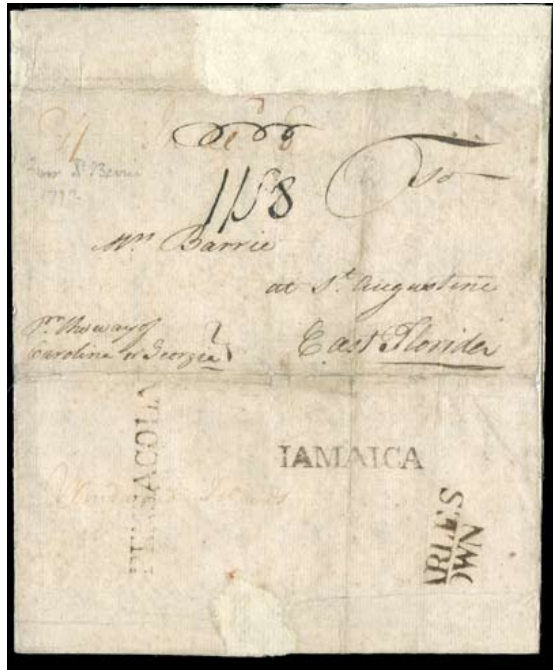 To
1/S8
Mrs Barrie
at St. Augustine
East Florida
Pr. the way of
Carolina or Georgia
PENSACOLA
IAMAICA
ARLES
OWN